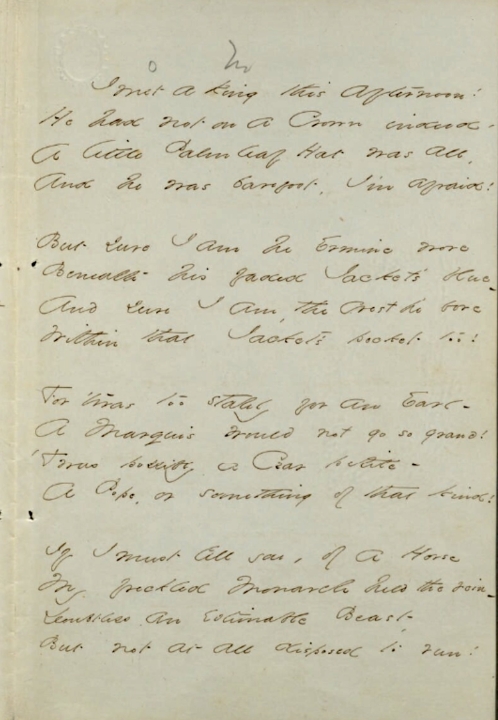 o No
I met a King this Afternoon!
He had not on a Crown indeed -
A little Palmleaf Hat was all,
And he was barefoot, I'm afraid!
But sure I am he Ermine wore
Beneath his faded Jacket's blue -
And sure I am, the crest he bore
Within that Jacket's pocket too!
For 'twas too stately for an Earl -
A Marquis would not go so grand!
'Twas possibly a Czar petite -
A Pope, or something of that kind!
If I must tell you, of a Horse
My freckled Monarch held the rein -
Doubtless an Estimable Beast -
But not at all disposed to run!